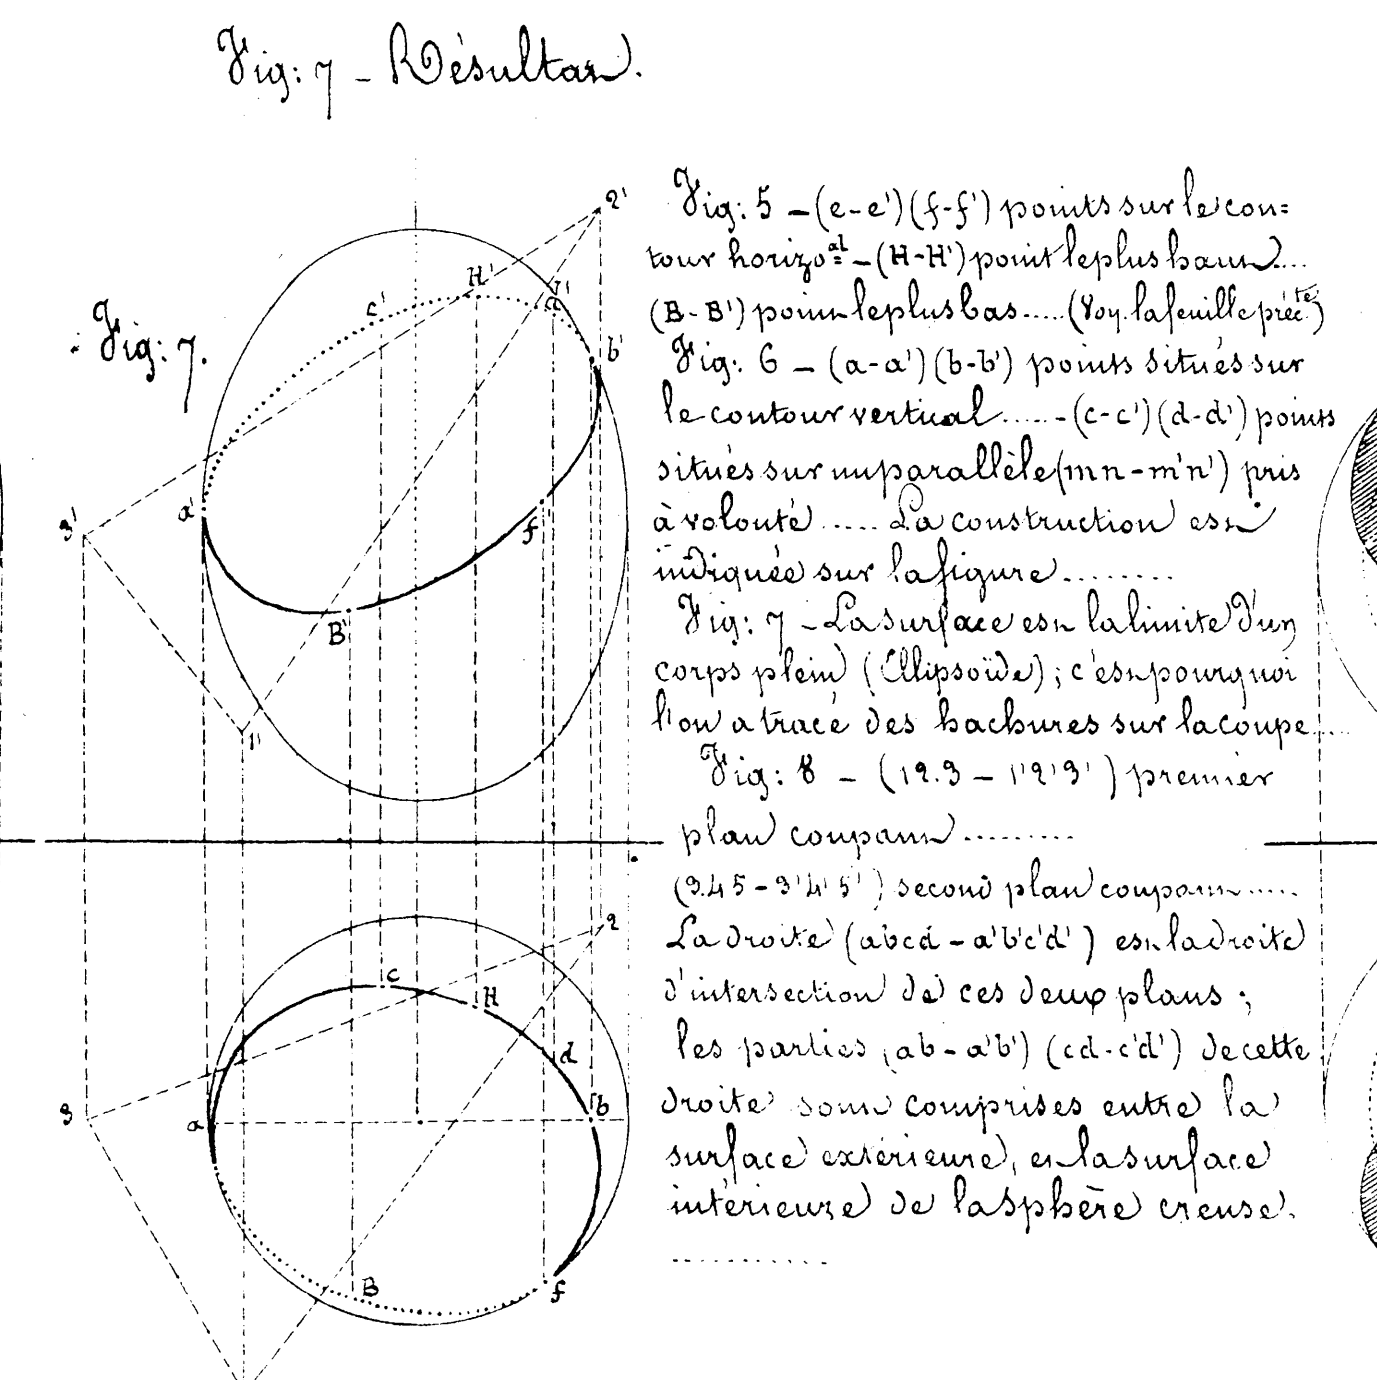 Fig: 7 - Résultat.
Fig: 7.
2'
H'
d'
c'
b'
a'
3'
f'
B'
1'
2
c
H
d
3
a
b
B
f
Fig: 5 - (e-e') (f-f') points sur le con=
tour horizo.al - (H-H') point le plus haut....
(B-B') point le plus bas..... (Voy. la feuille préc.te)
Fig: 6 - (a-a') (b-b') points situés sur
le contour vertical ..... - (c-c') (d-d') points
situés sur un parallèle (mn-m'n') pris
à volonté ..... La construction est
indiquée sur la figure ........
Fig: 7 - La surface est la limite d'un
corps plein (Ellipsoïde); c'est pourquoi
l'on a tracé des hachures sur la coupe....
Fig: 8 - (1 2.3 - 1'2'3') premier
plan coupant .........
(3.4 5 - 3'4'5') second plan coupant .....
La droite (abcd - a'b'c'd') est la droite
d'intersection de ces deux plans;
les parties (ab - a'b') (cd - c'd') de cette
droite sont comprises entre la
surface extérieure, et la surface
intérieure de la sphère creuse.
..........